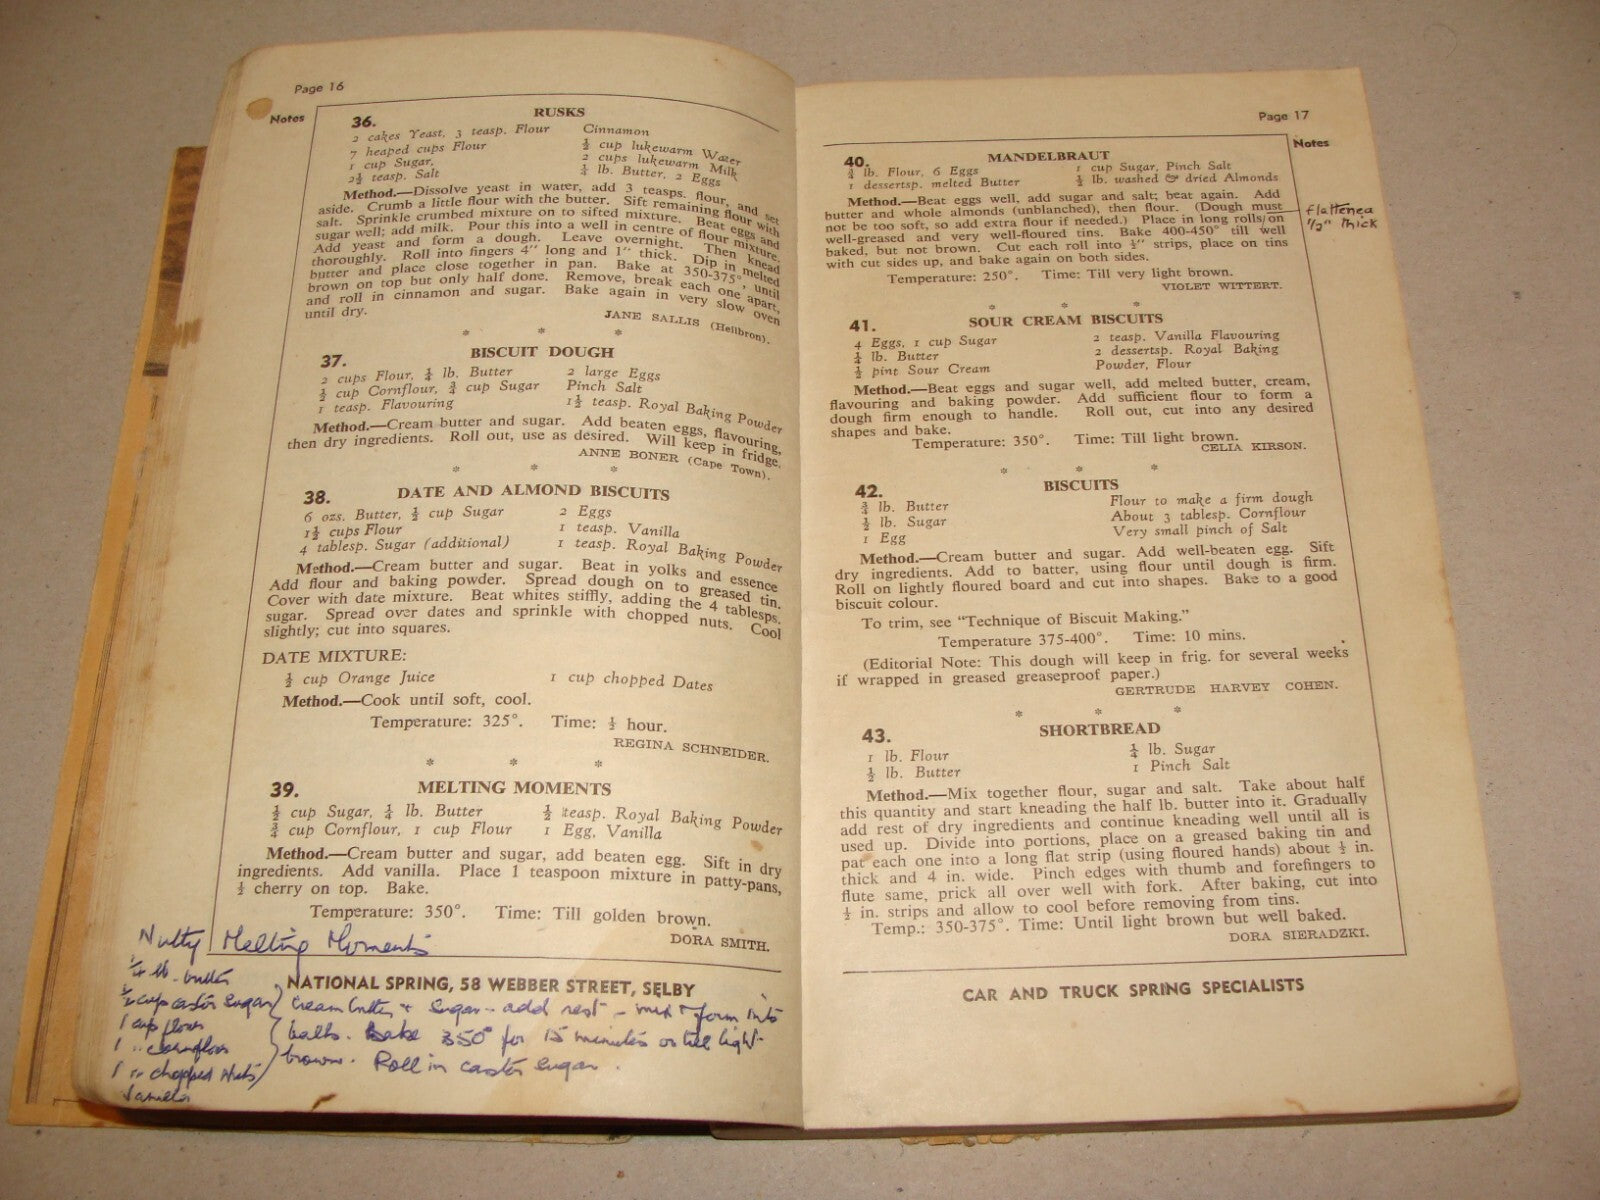 Page 16
Notes
36. RUSKS
2 cakes Yeast, 3 teasp. Flour Cinnamon
7 heaped cups Flour ½ cup lukewarm Water
1 cup Sugar, 2 cups lukewarm Milk
2½ teasp. Salt ¼ lb. Butter, 2 Eggs
Method.—Dissolve yeast in water, add 3 teasps. flour, and set
aside. Crumb a little flour with the butter. Sift remaining flour with
salt. Sprinkle crumbed mixture on to sifted mixture. Beat eggs and
sugar well; add milk. Pour this into a well in centre of flour mixture.
Add yeast and form a dough. Leave overnight. Then knead
thoroughly. Roll into fingers 4" long and 1" thick. Dip in melted
butter and place close together in pan. Bake at 350-375°, until
brown on top but only half done. Remove, break each one apart,
and roll in cinnamon and sugar. Bake again in very slow oven
until dry.
JANE SALLIS (Heilbron).
* * *
37. BISCUIT DOUGH
2 cups Flour, ¼ lb. Butter 2 large Eggs
½ cup Cornflour, ¾ cup Sugar Pinch Salt
1 teasp. Flavouring 1½ teasp. Royal Baking Powder
Method.—Cream butter and sugar. Add beaten eggs, flavouring,
then dry ingredients. Roll out, use as desired. Will keep in fridge.
ANNE BONER (Cape Town).
* * *
38. DATE AND ALMOND BISCUITS
6 ozs. Butter, ½ cup Sugar 2 Eggs
1½ cups Flour 1 teasp. Vanilla
4 tablesp. Sugar (additional) 1 teasp. Royal Baking Powder
Method.—Cream butter and sugar. Beat in yolks and essence
Add flour and baking powder. Spread dough on to greased tin.
Cover with date mixture. Beat whites stiffly, adding the 4 tablesps.
sugar. Spread over dates and sprinkle with chopped nuts. Cool
slightly; cut into squares.
DATE MIXTURE:
½ cup Orange Juice 1 cup chopped Dates
Method.—Cook until soft, cool.
Temperature: 325°. Time: ½ hour.
REGINA SCHNEIDER.
* * *
39. MELTING MOMENTS
½ cup Sugar, ¼ lb. Butter ½ teasp. Royal Baking Powder
¾ cup Cornflour, 1 cup Flour 1 Egg, Vanilla
Method.—Cream butter and sugar, add beaten egg. Sift in dry
ingredients. Add vanilla. Place 1 teaspoon mixture in patty-pans,
½ cherry on top. Bake.
Temperature: 350°. Time: Till golden brown.
DORA SMITH.
Nutty Melting Moments
¼ lb. butter
½ cup castor sugar
1 cup flour
1 " cornflour
1 " chopped nuts
Vanilla
NATIONAL SPRING, 58 WEBBER STREET, SELBY
cream butter + sugar - add rest - mix + form into
balls. Bake 350° for 15 minutes or till light
brown. Roll in castor sugar.
Page 17
Notes
40. MANDELBRAUT
¾ lb. Flour, 6 Eggs 1 cup Sugar, Pinch Salt
1 dessertsp. melted Butter ½ lb. washed & dried Almonds
Method.—Beat eggs well, add sugar and salt; beat again. Add
butter and whole almonds (unblanched), then flour. (Dough must
not be too soft, so add extra flour if needed.) Place in long rolls on
well-greased and very well-floured tins. Bake 400-450° till well
baked, but not brown. Cut each roll into ½" strips, place on tins
with cut sides up, and bake again on both sides.
Temperature: 250°. Time: Till very light brown.
VIOLET WITTERT.
flattened
1/2" thick
* * *
41. SOUR CREAM BISCUITS
4 Eggs, 1 cup Sugar 2 teasp. Vanilla Flavouring
¼ lb. Butter 2 dessertsp. Royal Baking
½ pint Sour Cream Powder, Flour
Method.—Beat eggs and sugar well, add melted butter, cream,
flavouring and baking powder. Add sufficient flour to form a
dough firm enough to handle. Roll out, cut into any desired
shapes and bake.
Temperature: 350°. Time: Till light brown.
CELIA KIRSON.
* * *
42. BISCUITS
¾ lb. Butter Flour to make a firm dough
½ lb. Sugar About 3 tablesp. Cornflour
1 Egg Very small pinch of Salt
Method.—Cream butter and sugar. Add well-beaten egg. Sift
dry ingredients. Add to batter, using flour until dough is firm.
Roll on lightly floured board and cut into shapes. Bake to a good
biscuit colour.
To trim, see "Technique of Biscuit Making."
Temperature 375-400°. Time: 10 mins.
(Editorial Note: This dough will keep in frig. for several weeks
if wrapped in greased greaseproof paper.)
GERTRUDE HARVEY COHEN.
* * *
43. SHORTBREAD
1 lb. Flour ¼ lb. Sugar
½ lb. Butter 1 Pinch Salt
Method.—Mix together flour, sugar and salt. Take about half
this quantity and start kneading the half lb. butter into it. Gradually
add rest of dry ingredients and continue kneading well until all is
used up. Divide into portions, place on a greased baking tin and
pat each one into a long flat strip (using floured hands) about ½ in.
thick and 4 in. wide. Pinch edges with thumb and forefingers to
flute same, prick all over well with fork. After baking, cut into
½ in. strips and allow to cool before removing from tins.
Temp.: 350-375°. Time: Until light brown but well baked.
DORA SIERADZKI.
CAR AND TRUCK SPRING SPECIALISTS